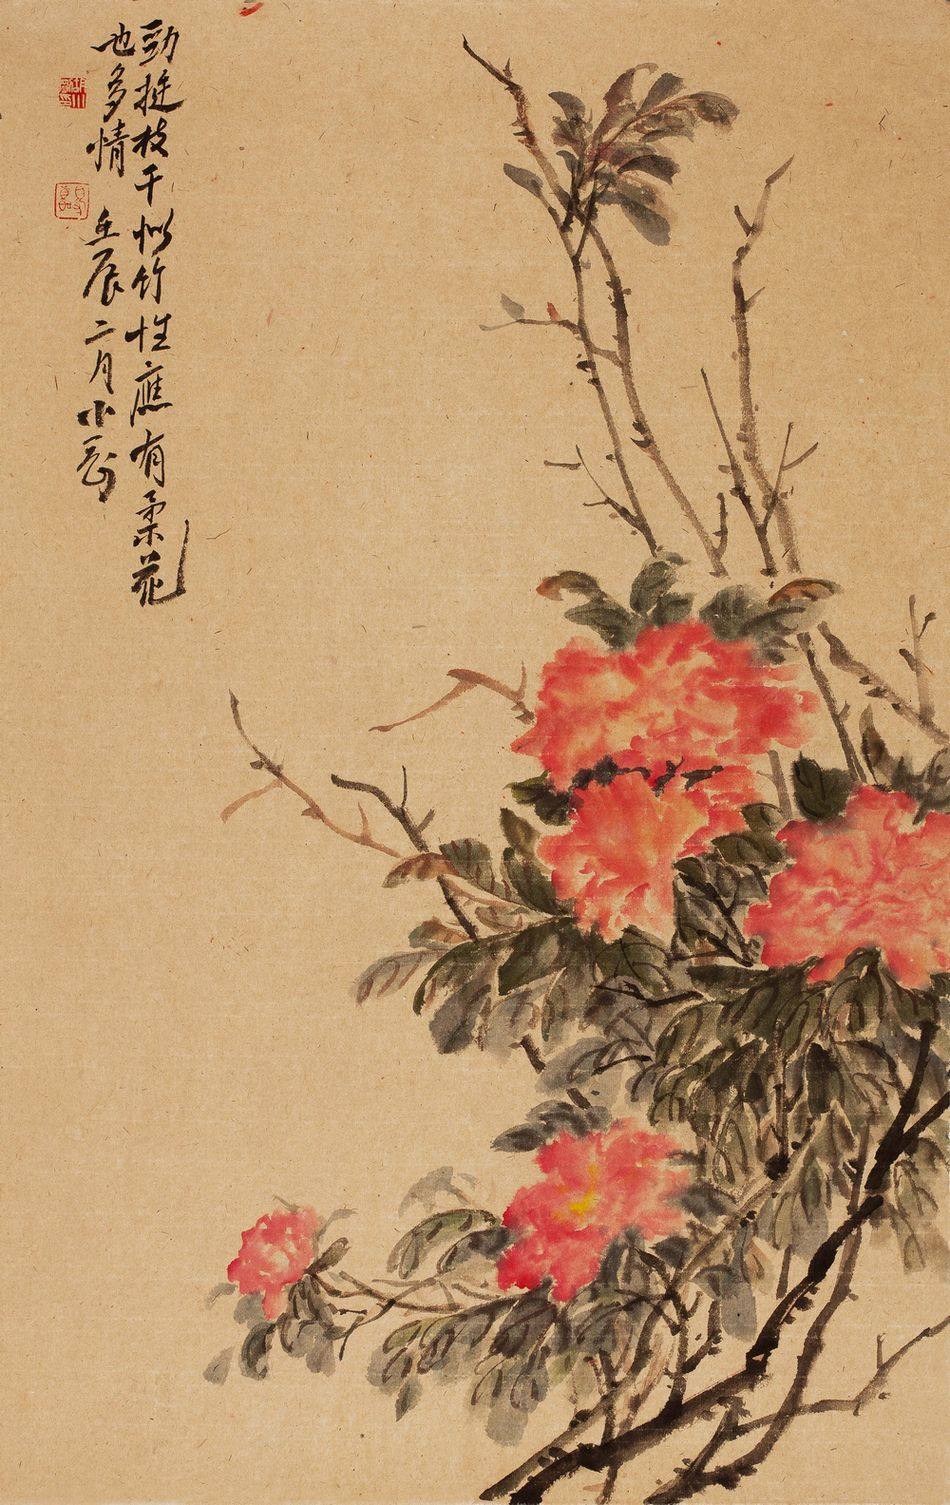 勁挺枝干似竹性應有柔花
也多情 壬辰二月小